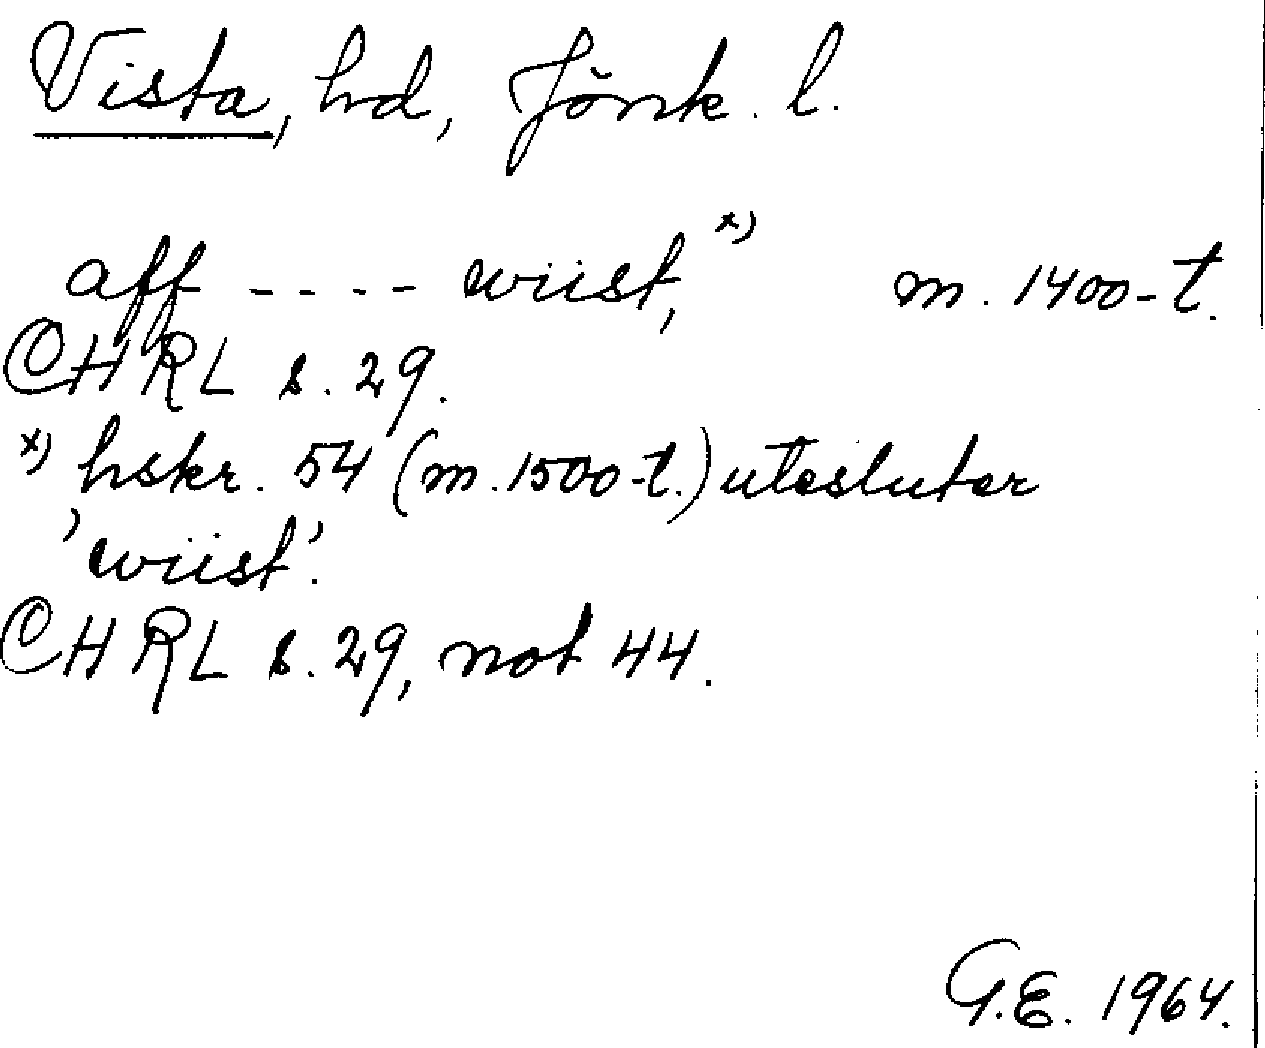 Vista, hd, Jönk. l.
aff ---- wiist, x) m. 1400-t.
CHRL s. 29.
x) hskr. 54 (m. 1500-t.) utesluter
'wiist'.
CHRL s. 29, not 44.
G.E. 1964.